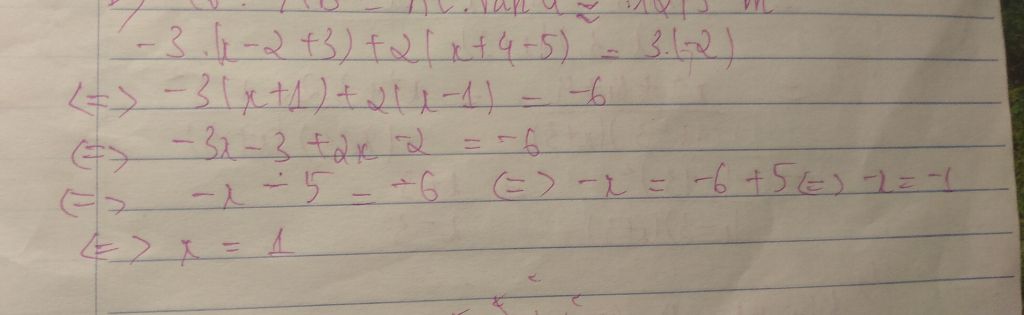 -3.(x-2+3)+2(x+4-5) = 3.(-2)
<=> -3(x+1)+2(x-1) = -6
<=> -3x-3+2x-2 = -6
<=> -x-5 = -6 <=> -x = -6+5 <=> -x = -1
<=> x = 1